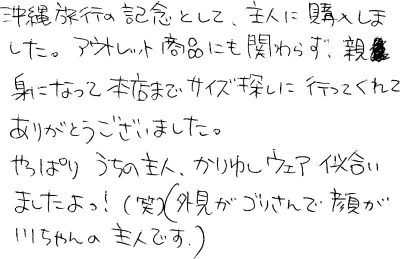 沖縄旅行の記念として、主人に購入しま
した。アウトレット商品にも関わらず、親
身になって本店までサイズ探しに行ってくれて
ありがとうございました。
やっぱり うちの主人、かりゆしウェア 似合い
ましたよっ！（笑）（外見がゴリさんで顔が
川ちゃんの主人です。）